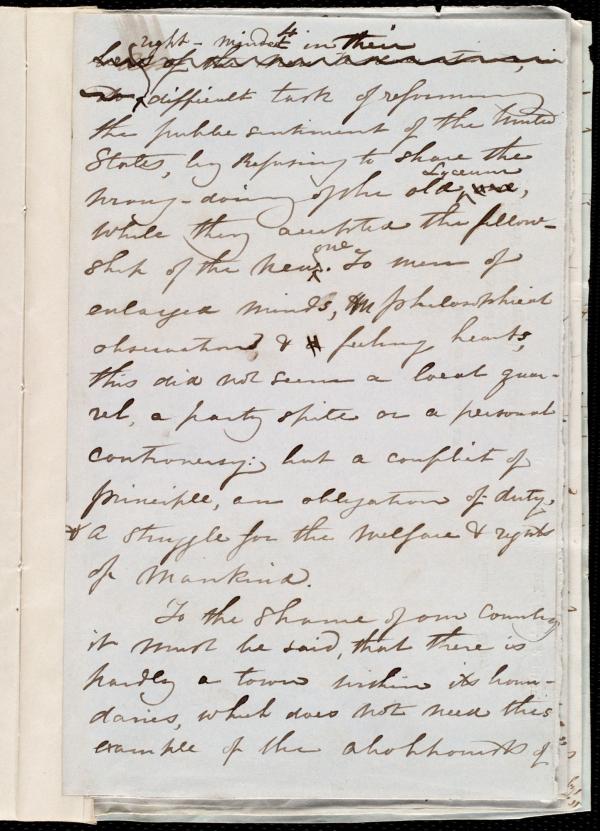 right-minded in their
difficult task of reforming
the public sentiment of the United
States, by refusing to share the
Lyceum
wrong-doing of the old,
while they accepted the fellow-
one
ship of the new. To men of
enlarged minds, philosophical
observation, & feeling hearts,
this did not seem a local quar-
rel, a party spite or a personal
controversy: but a conflict of
principle, an obligation of duty,
& a struggle for the welfare & rights
of Mankind.
To the shame of our Country
it must be said, that there is
hardly a town within its boun-
daries, which does not need this
example of the abolitionists of